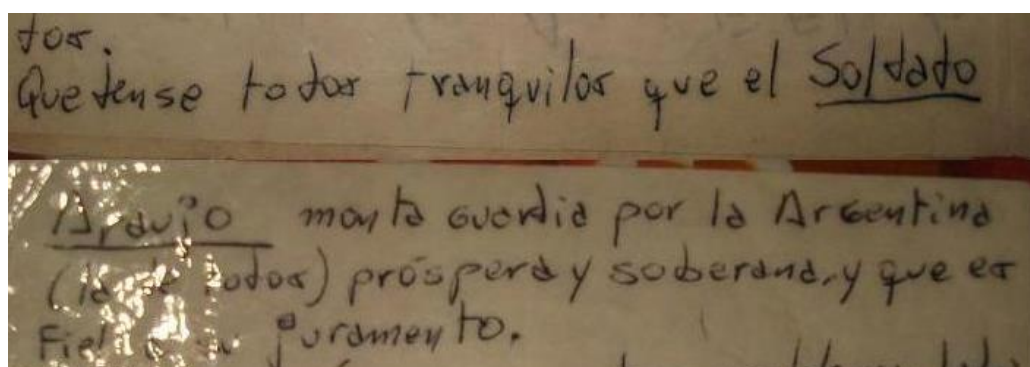 tos.
Quedense todos tranquilos que el Soldado
Araujo monta guardia por la Argentina
(la de todos) próspera y soberana, y que es
Fiel a su juramento.